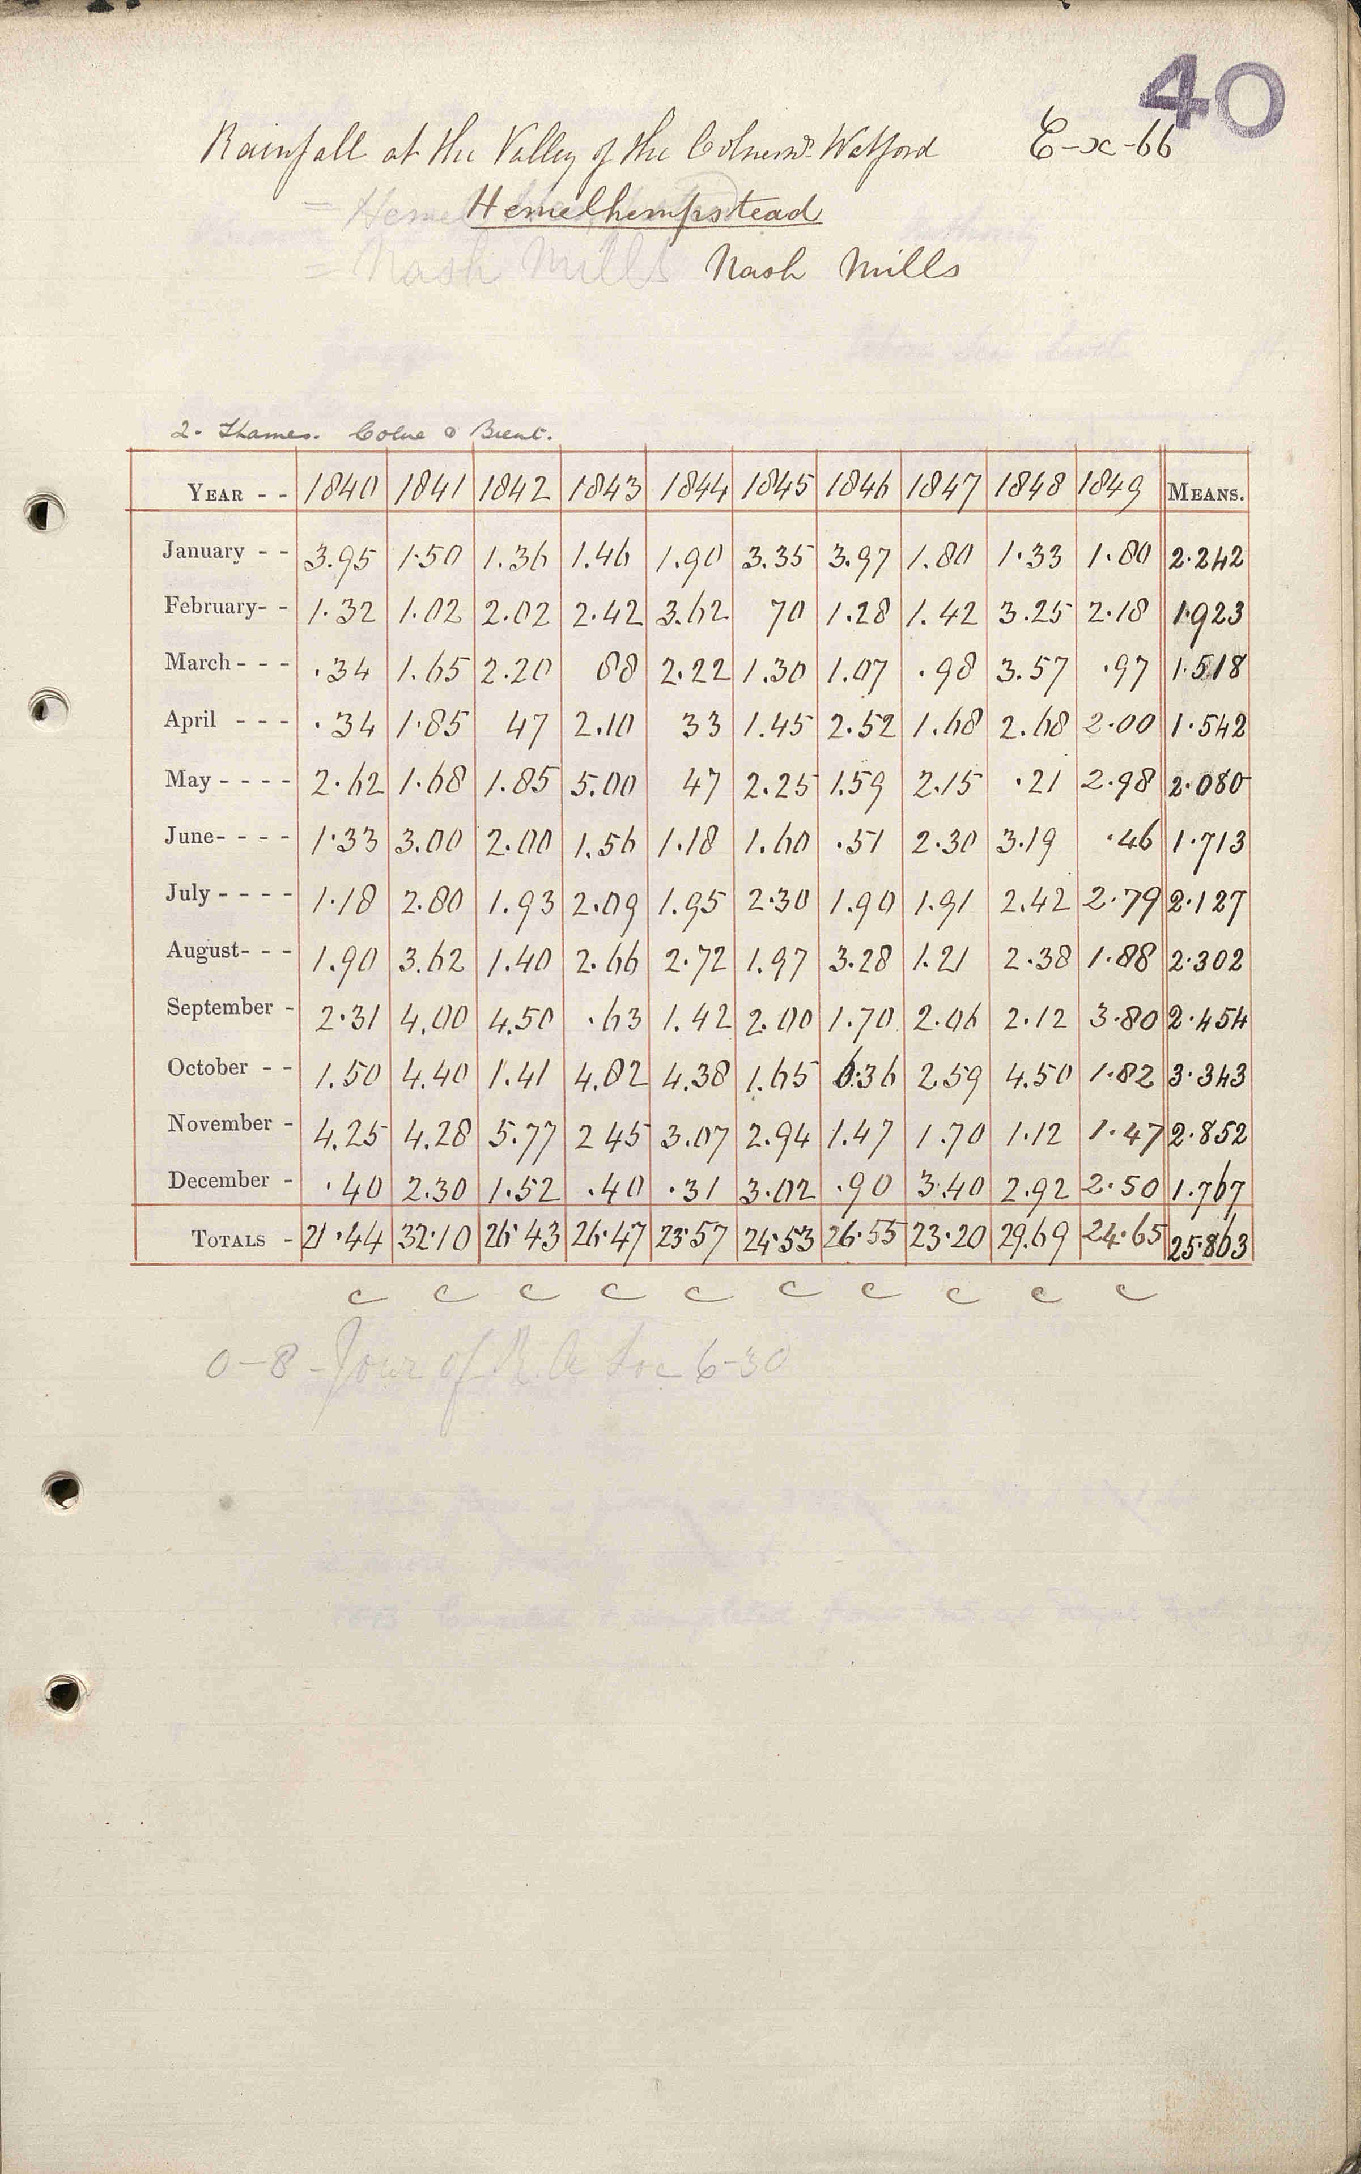 40
Rainfall at the Valley of the Colne nr Watford E-x-66
Hemelhempstead
= Nash Mills Nash Mills
2. Thames. Colne & Brent.
YEAR - - 1840 1841 1842 1843 1844 1845 1846 1847 1848 1849 MEANS.
January - - 3.95 1.50 1.36 1.46 1.90 3.35 3.97 1.80 1.33 1.80 2.242
February- - 1.32 1.02 2.02 2.42 3.62 70 1.28 1.42 3.25 2.18 1.923
March - - - .34 1.65 2.20 88 2.22 1.30 1.07 .98 3.57 .97 1.518
April - - - .34 1.85 47 2.10 33 1.45 2.52 1.68 2.68 2.00 1.542
May - - - - 2.62 1.68 1.85 5.00 47 2.25 1.59 2.15 .21 2.98 2.080
June- - - - 1.33 3.00 2.00 1.56 1.18 1.60 .51 2.30 3.19 .46 1.713
July - - - - 1.18 2.80 1.93 2.09 1.95 2.30 1.90 1.91 2.42 2.79 2.127
August- - - 1.90 3.62 1.40 2.66 2.72 1.97 3.28 1.21 2.38 1.88 2.302
September - 2.31 4.00 4.50 .63 1.42 2.00 1.70 2.06 2.12 3.80 2.454
October - - 1.50 4.40 1.41 4.82 4.38 1.65 6.36 2.59 4.50 1.82 3.343
November - 4.25 4.28 5.77 2 45 3.07 2.94 1.47 1.70 1.12 1.47 2.852
December - .40 2.30 1.52 .40 .31 3.02 .90 3.40 2.92 2.50 1.767
TOTALS - 21.44 32.10 26.43 26.47 23.57 24.53 26.55 23.20 29.69 24.65 25.863
c c c c c c c c c c
0-8 - Jour of R. A Soc 6-30